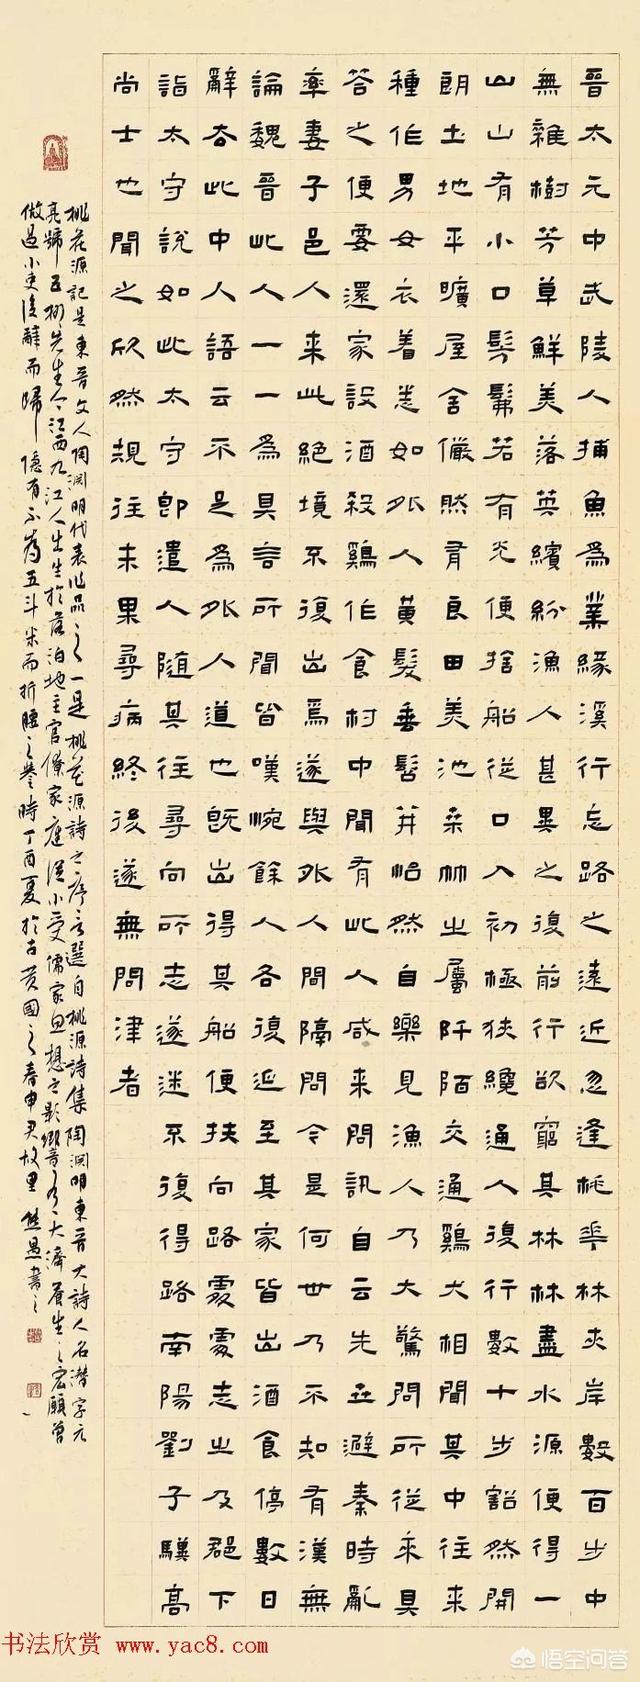 晉太元中武陵人捕魚為業緣溪行忘路之遠近忽逢桃華林夾岸數百步中
無雜樹芳草鮮美落英繽紛漁人甚異之復前行欲窮其林林盡水源便得一
山山有小口髣髴若有光便捨船從口入初極狹纔通人復行數十步豁然開
朗土地平曠屋舍儼然有良田美池桑竹之屬阡陌交通鷄犬相聞其中往來
種作男女衣着悉如外人黃髮垂髫并怡然自樂見漁人乃大驚問所從來具
答之便要還家設酒殺鷄作食村中聞有此人咸來問訊自云先世避秦時亂
率妻子邑人來此絕境不復出焉遂與外人間隔問今是何世乃不知有漢無
論魏晉此人一一為具言所聞皆嘆惋餘人各復延至其家皆出酒食停數日
辭去此中人語云不足為外人道也既出得其船便扶向路處處志之及郡下
詣太守說如此太守即遣人隨其往尋向所志遂迷不復得路南陽劉子驥高
尚士也聞之欣然規往未果尋病終後遂無問津者
桃花源記是東晉文人陶淵明代表作品之一是桃花源詩之序言選自桃源詩集陶淵明東晉大詩人名潛字元
亮號五柳先生今江西九江人出生於落泊地主官僚家庭從小受儒家思想之影響乃大濟蒼生之宏願曾
做過小吏後辭而歸隱有不為五斗米而折腰之譽時丁酉夏於古黃國之春申君故里熊愚書之
书法欣赏 www.yac8.com
悟空问答